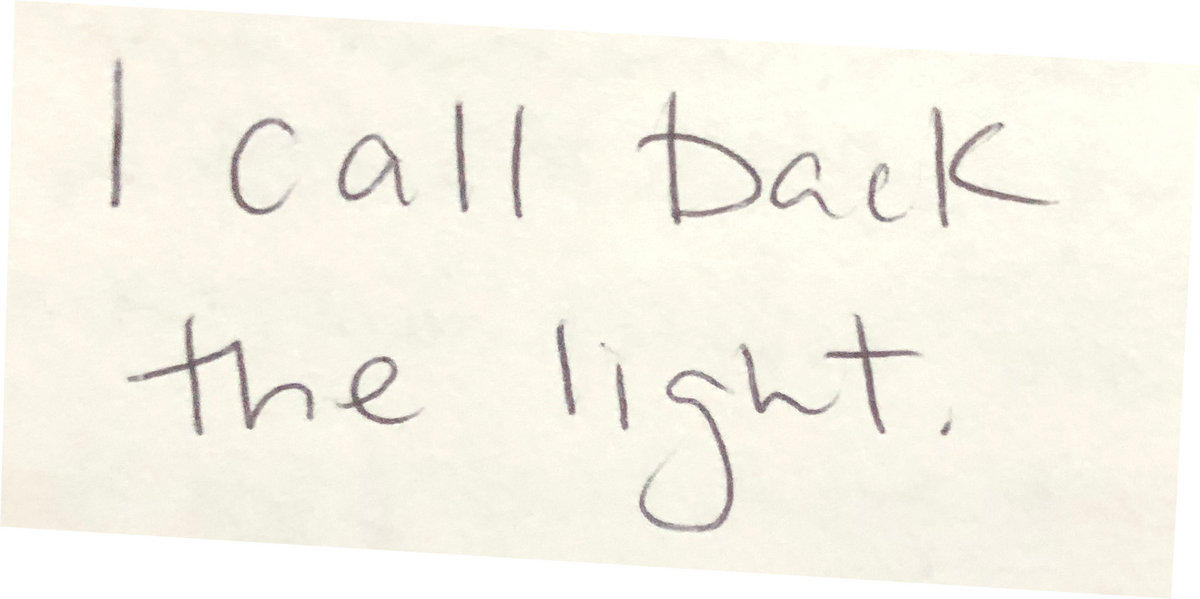 I call back
the light.